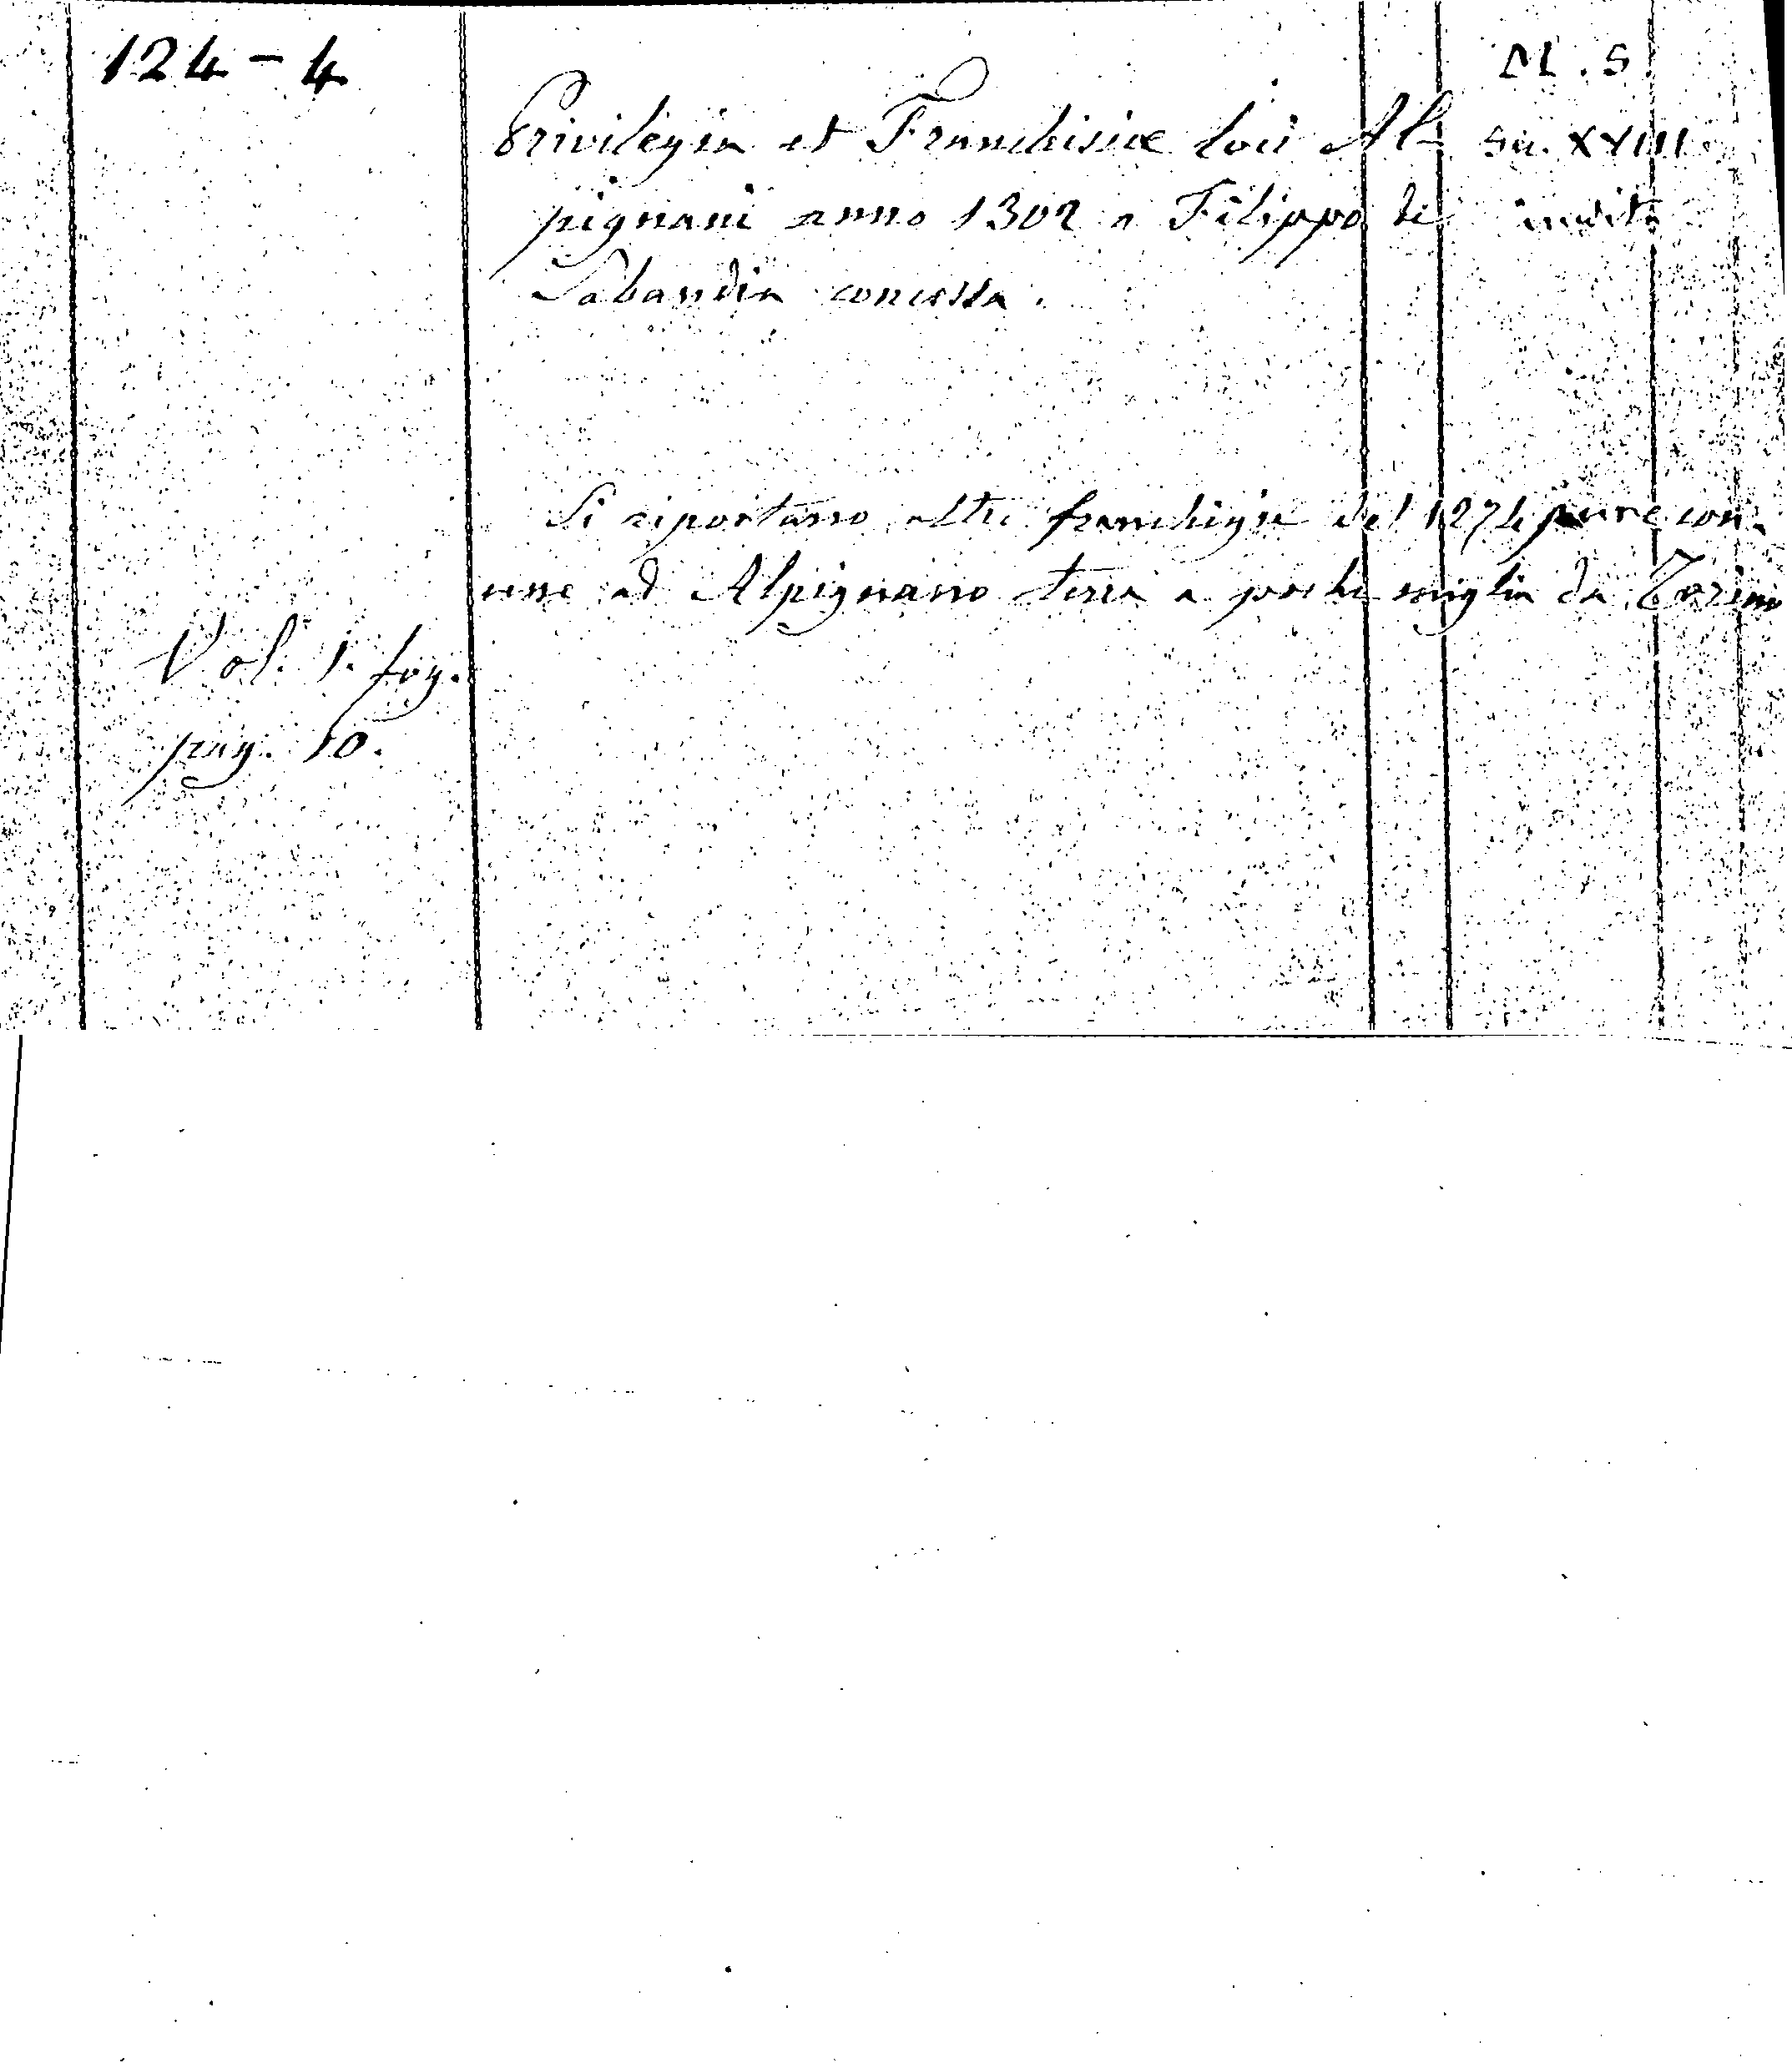 124-4
M.S.
Privilegia et Franchisiae loci Al-
sec. XVIII
pignani anno 1302 a Filippo de
inedito
Sabaudia concessa.
Si riportano altre franchigie del 1274 pure con-
cesse ad Alpignano terra a poche miglia da Torino
Vol. 1. fog.
pag. 10.